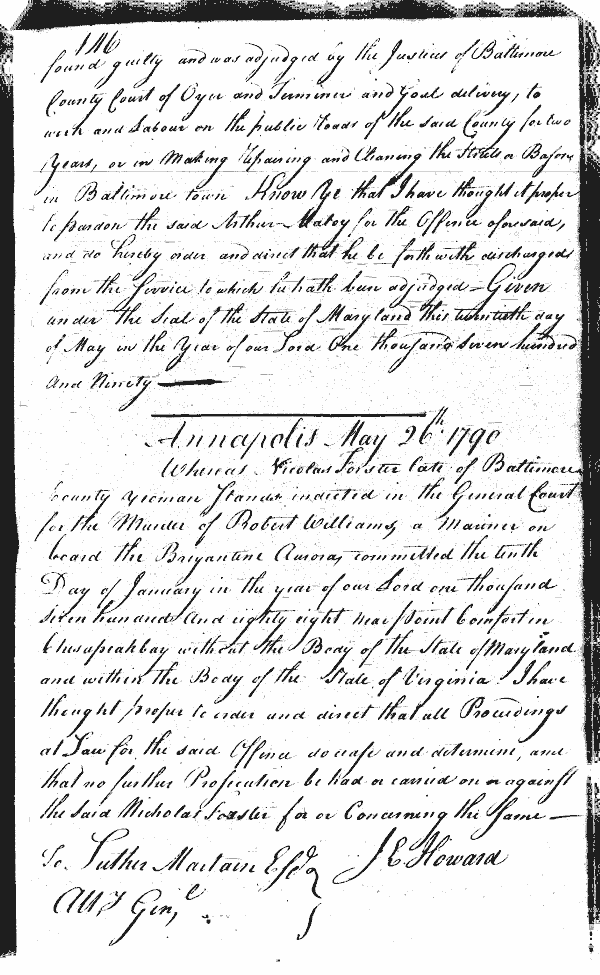 146
found guilty and was adjudged by the Justices of Baltimore
County Court of Oyer and Terminer and Goal delivery, to
work and Labour on the public roads of the said County for two
Years, or in Making repairing and Cleaning the Streets or Bason
in Baltimore town Know Ye that I have thought it proper
to pardon the said Arthur Maloy for the Offence aforesaid,
and do hereby order and direct that he be forthwith discharged
from the Service to which he hath been adjudged – Given
under the Seal of the State of Maryland this twentieth day
of May in the Year of our Lord One thousand seven hundred
and Ninety ——
Annapolis May 26th 1790
Whereas Nicolas Forster late of Baltimore
County yeoman Stands indicted in the General Court
for the Murder of Robert Williams, a mariner on
board the Brigantine Aurora, committed the tenth
Day of January in the year of our Lord one thousand
seven hundred And eighty eight near point Comfort in
Chesapeakbay without the Body of the State of Maryland
and within the Body of the State of Virginia I have
thought proper to order and direct that all Proceedings
at Law for the said Offence do cease and determine, and
that no further Prosecution be had or carried on or against
the said Nicholas Forster for or Concerning the same —
To Luther Martain Esqr J E Howard
Att'y Gen,l